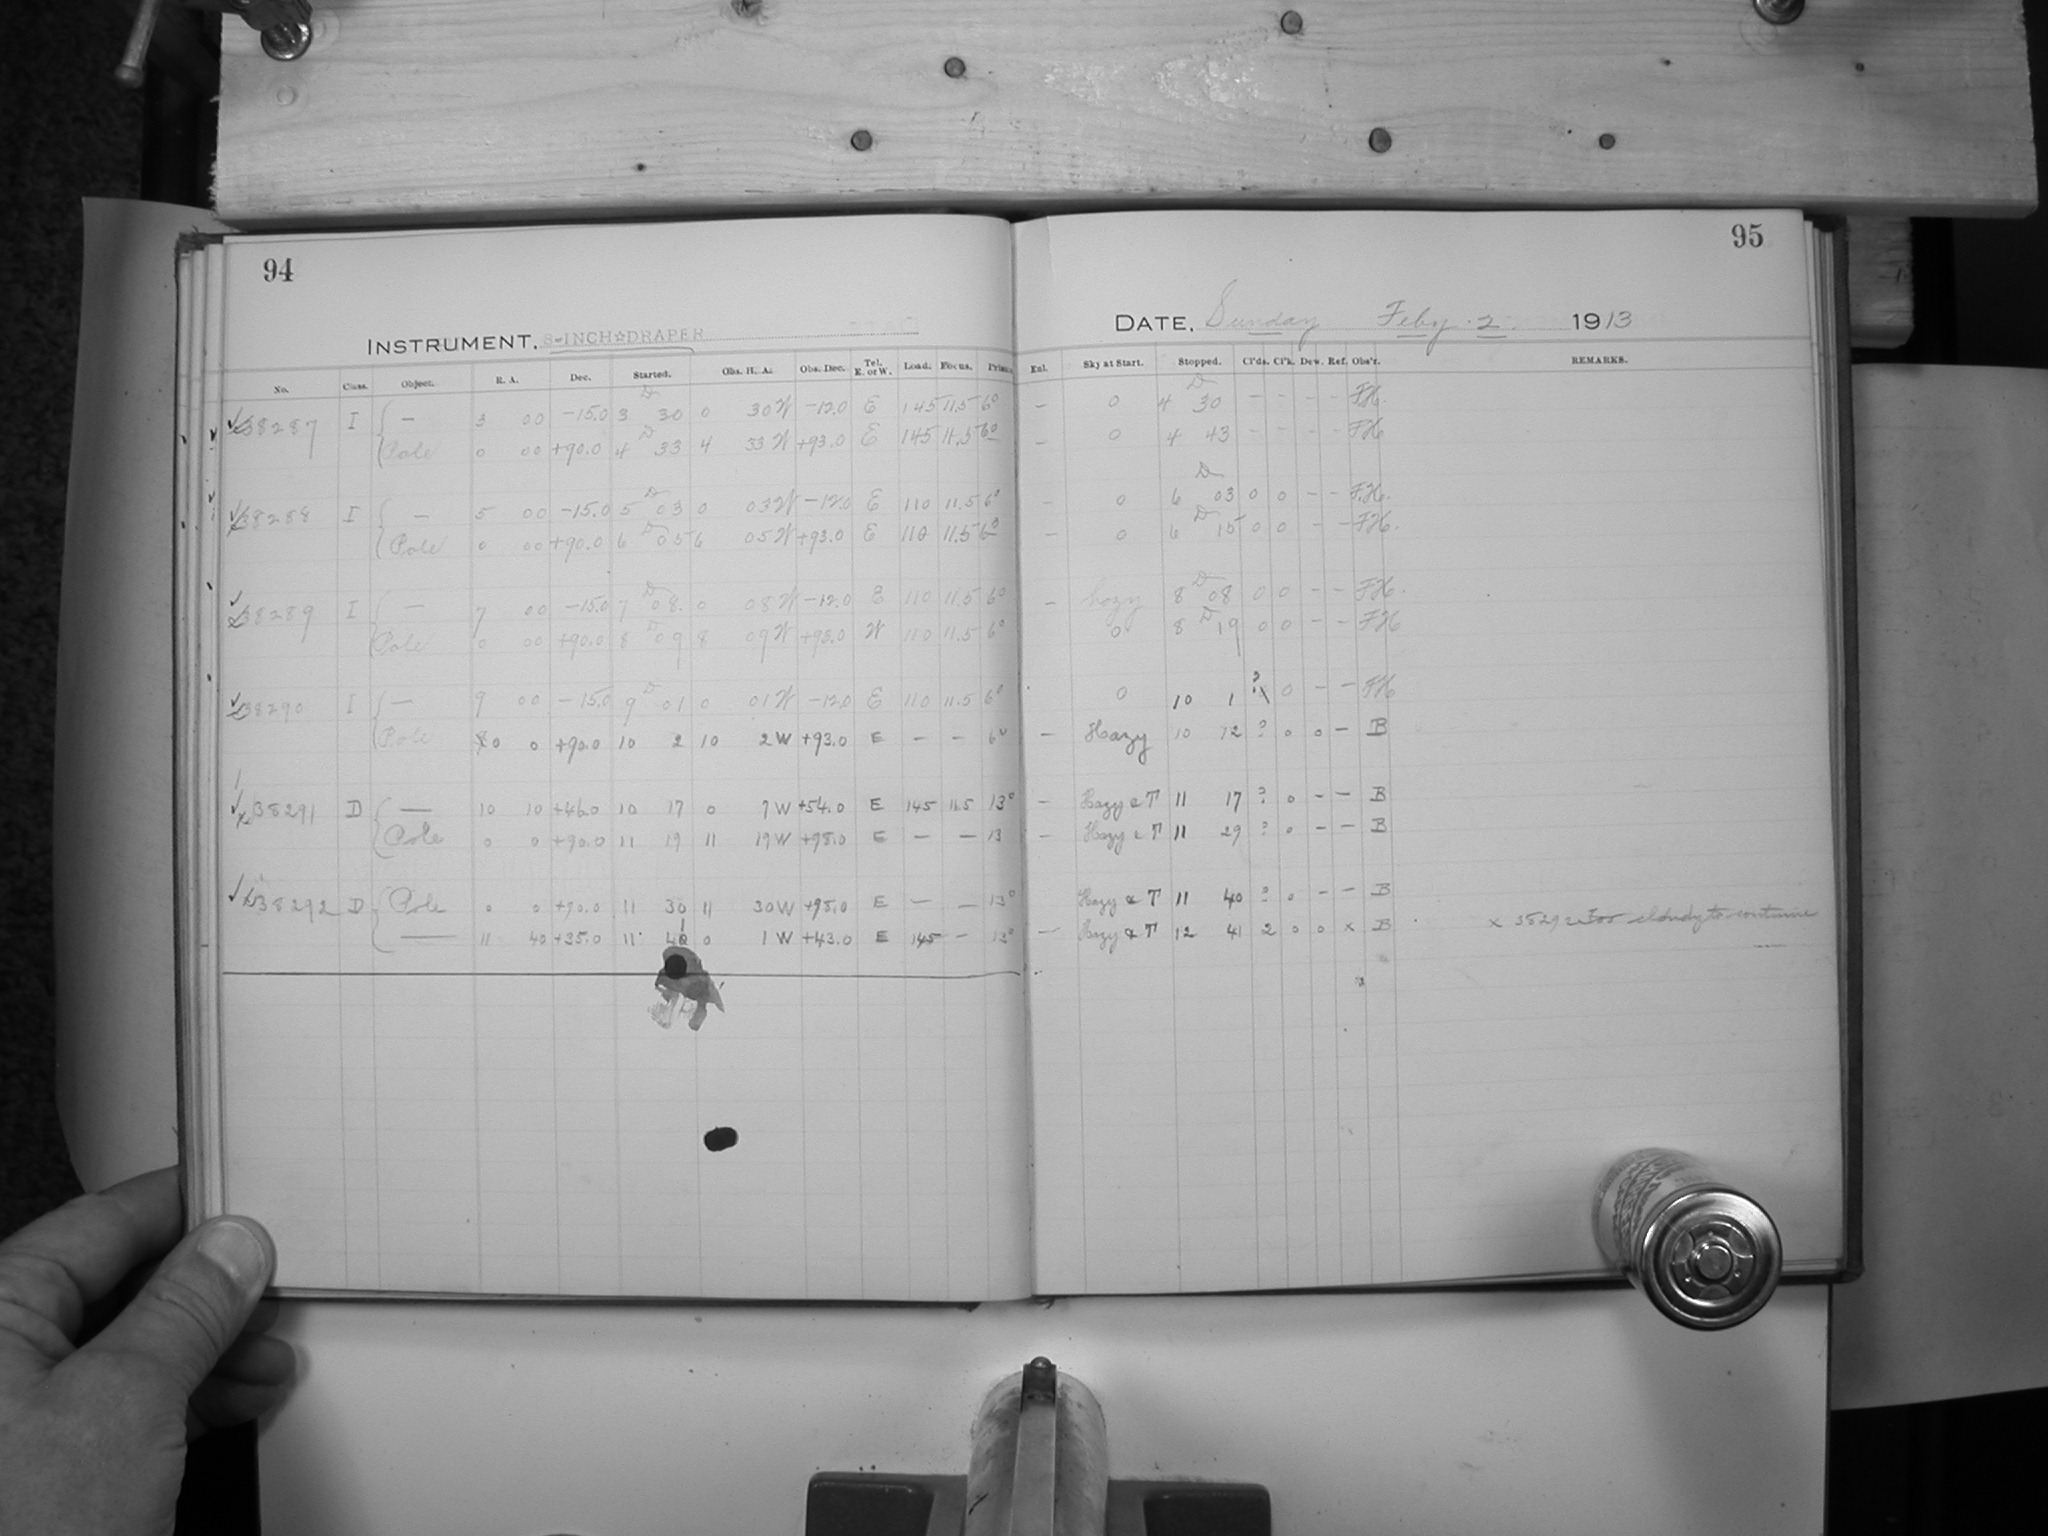 94
95
INSTRUMENT. 8-INCH☆DRAPER
DATE, Sunday Feby. 2. 1913
No. Class. Object. R. A. Dec. Started. Obs. H. A. Obs. Dec. Tel. E. or W. Load. Focus. Prism. Enl. Sky at Start. Stopped. Cl'ds. Cl'k. Dew. Ref. Obs'r. REMARKS.
38287 I { — 3 00 -15.0 3 D 30 0 30 W -12.0 E 145 11.5 6° — 0 4 D 30 - - - - F.H.
Pole 0 00 +90.0 4 D 33 4 33 W +93.0 E 145 11.5 6° — 0 4 43 - - - - FH
38288 I { — 5 00 -15.0 5 D 03 0 03 W -12.0 E 110 11.5 6° — 0 6 D 03 0 0 - - F.H.
Pole 0 00 +90.0 6 D 05 6 05 W +93.0 E 110 11.5 6° — 0 6 D 15 0 0 - - FH.
38289 I { — 7 00 -15.0 7 D 08. 0 08 W -12.0 E 110 11.5 6° — hazy 8 D 08 0 0 - - FH.
Pole 0 00 +90.0 8 D 09 8 09 W W 110 11.5 6° 0 8 D 19 0 0 - - FH
38290 I { — 9 00 -15.0 9 D 01 0 01 W -12.0 E 110 11.5 6° 0 10 1 ? 0 - - FH
Pole 0 0 +90.0 10 2 10 2 W +93.0 E — — 6° — Hazy 10 12 ? 0 0 - B
38291 D { — 10 10 +46.0 10 17 0 7 W +54.0 E 145 11.5 13° — Hazy & T 11 17 ? 0 - - B
Pole 0 0 +90.0 11 19 11 19 W +98.0 E — — 13 — Hazy & T 11 29 ? 0 - - B
38292 D { Pole 0 0 +90.0 11 30 11 30 W E — — 13° Hazy & T 11 40 ? 0 - - B
— 11 40 +35.0 11 0 1 W +43.0 E 145 — 13° — Hazy & T 12 41 2 0 0 x B x Too cloudy to continue